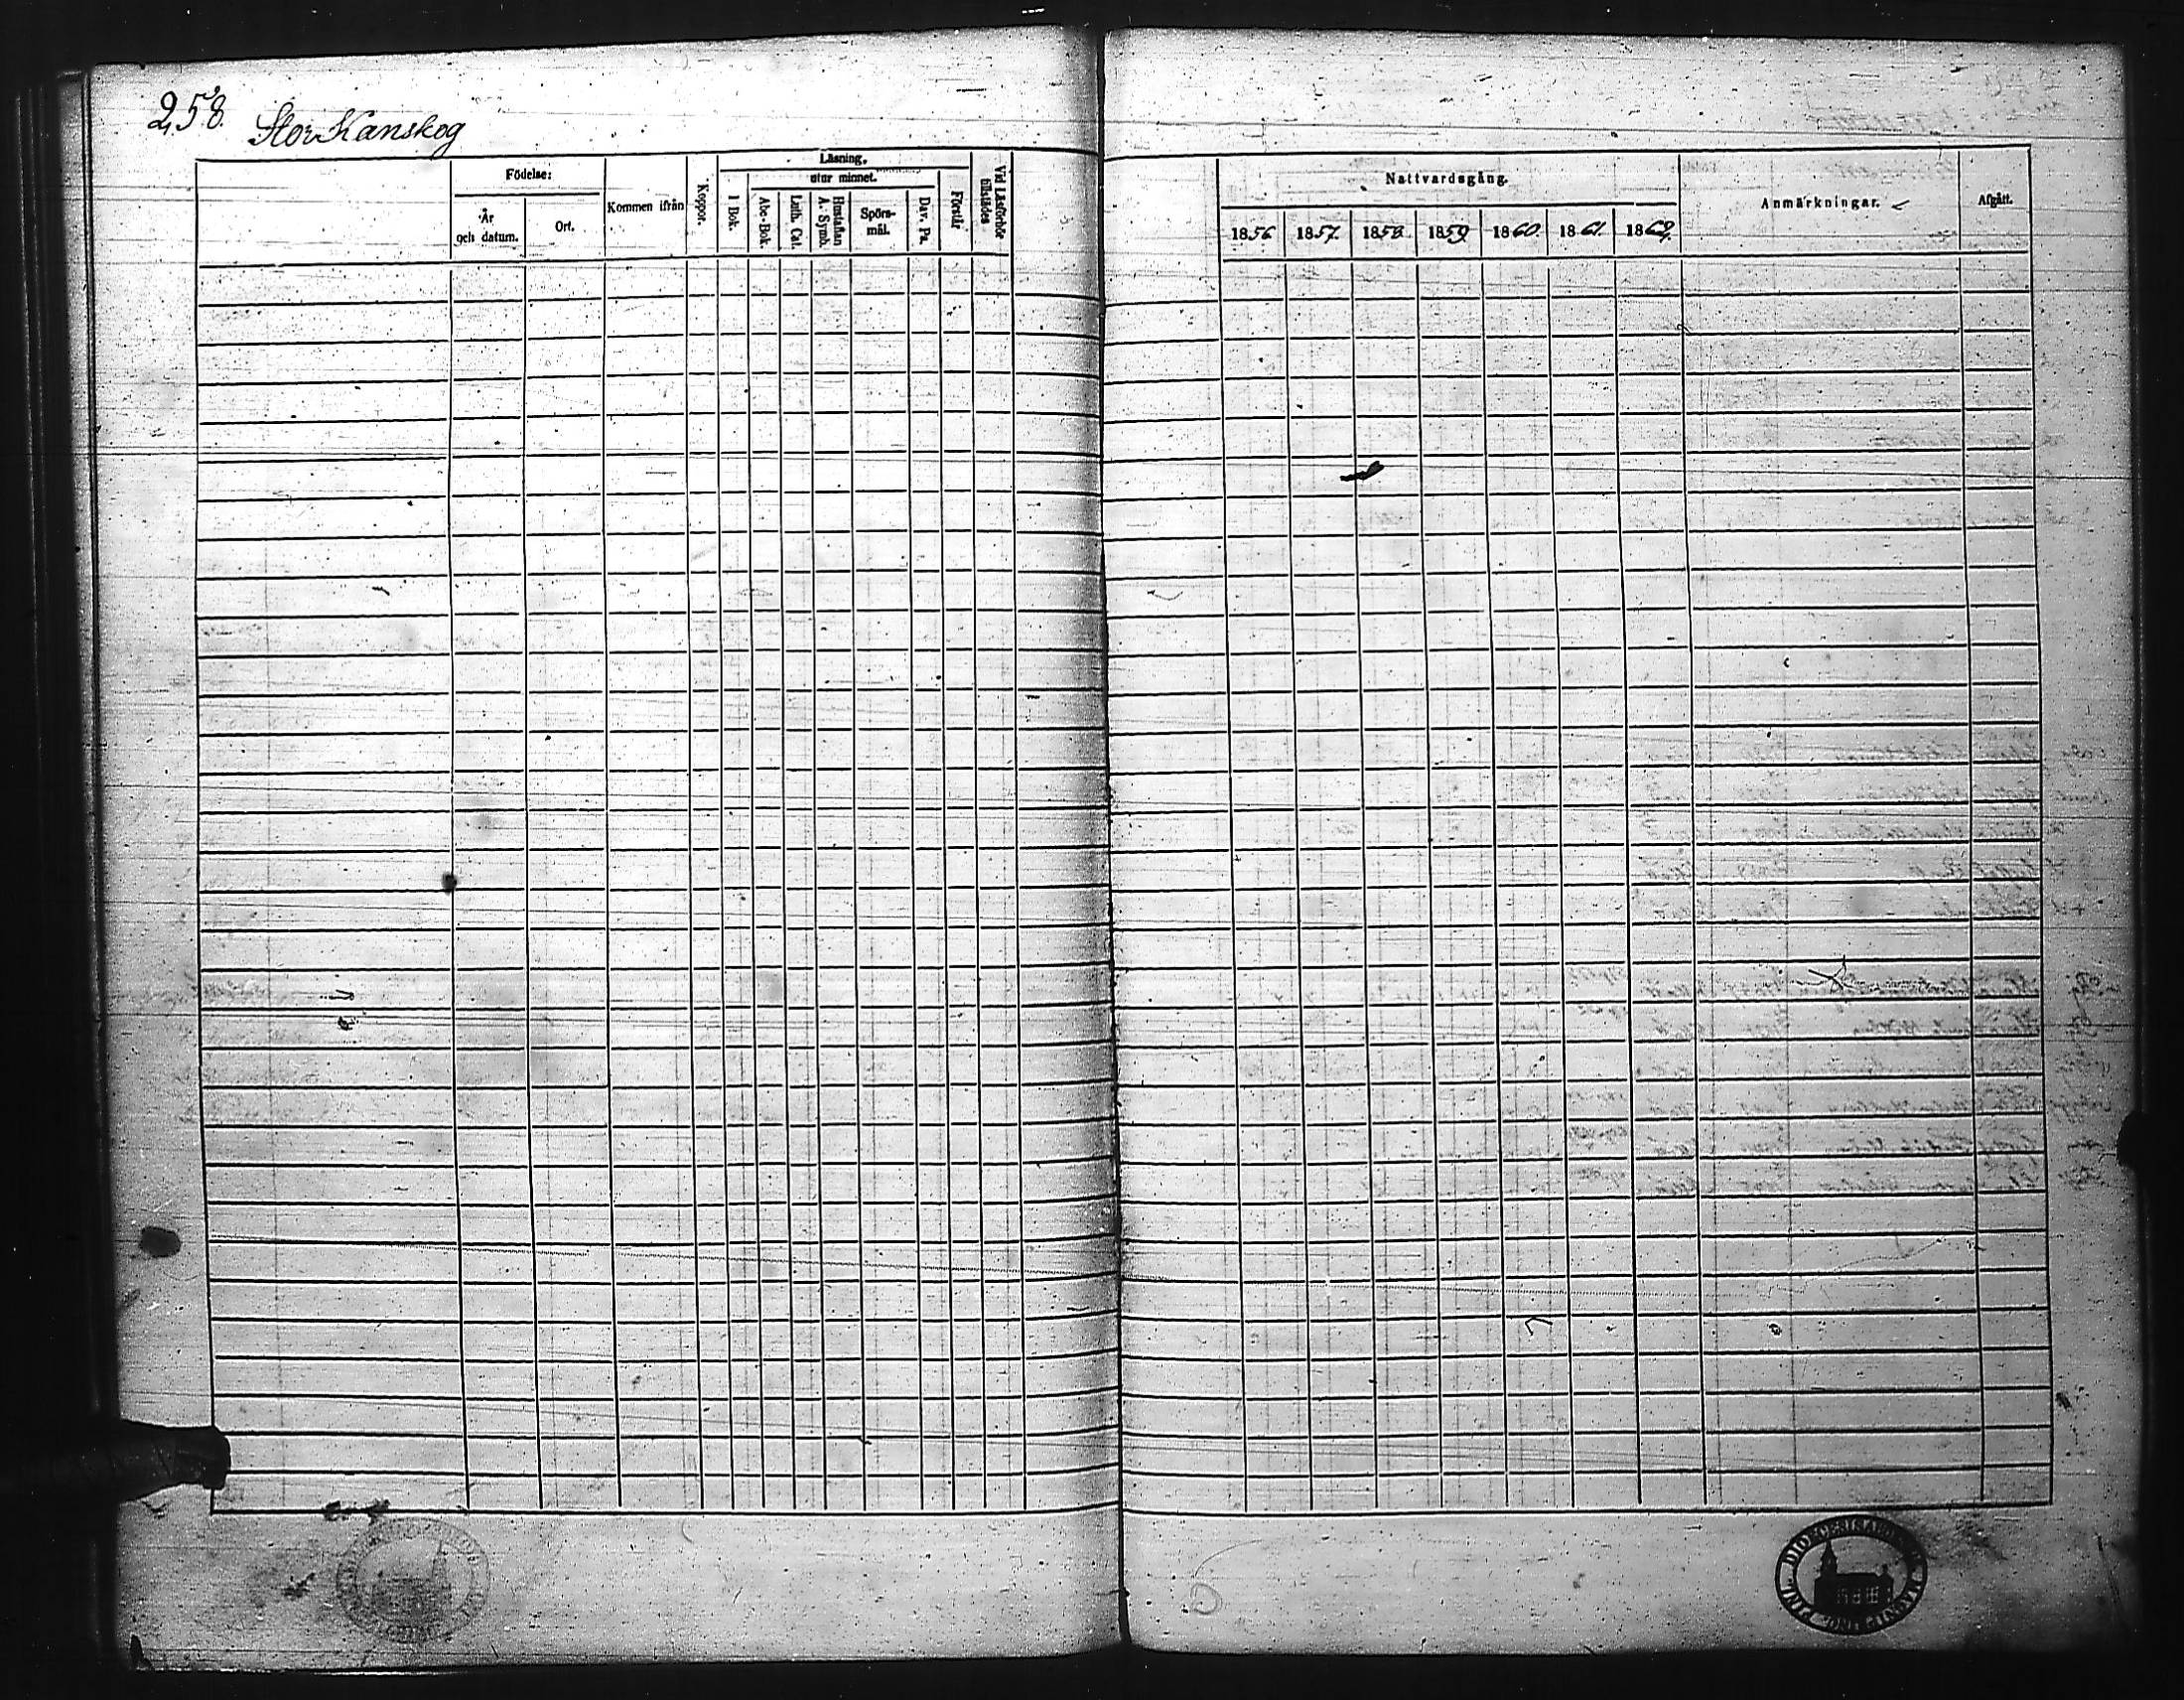 258.
StorKanskog
Födelse:
År och datum.
Ort.
Kommen ifrån
Koppor.
Läsning,
utur minnet.
I Bok.
Abc-Bok.
Luth. Cat.
Hustaflan A. Symb.
Spörs-mål.
Dav. Ps.
Förstår
Vid Läsförhör tillstädes
Nattvardsgång.
1856
1857.
1858
1859
1860.
1861.
1862.
Anmärkningar.
Afgått.